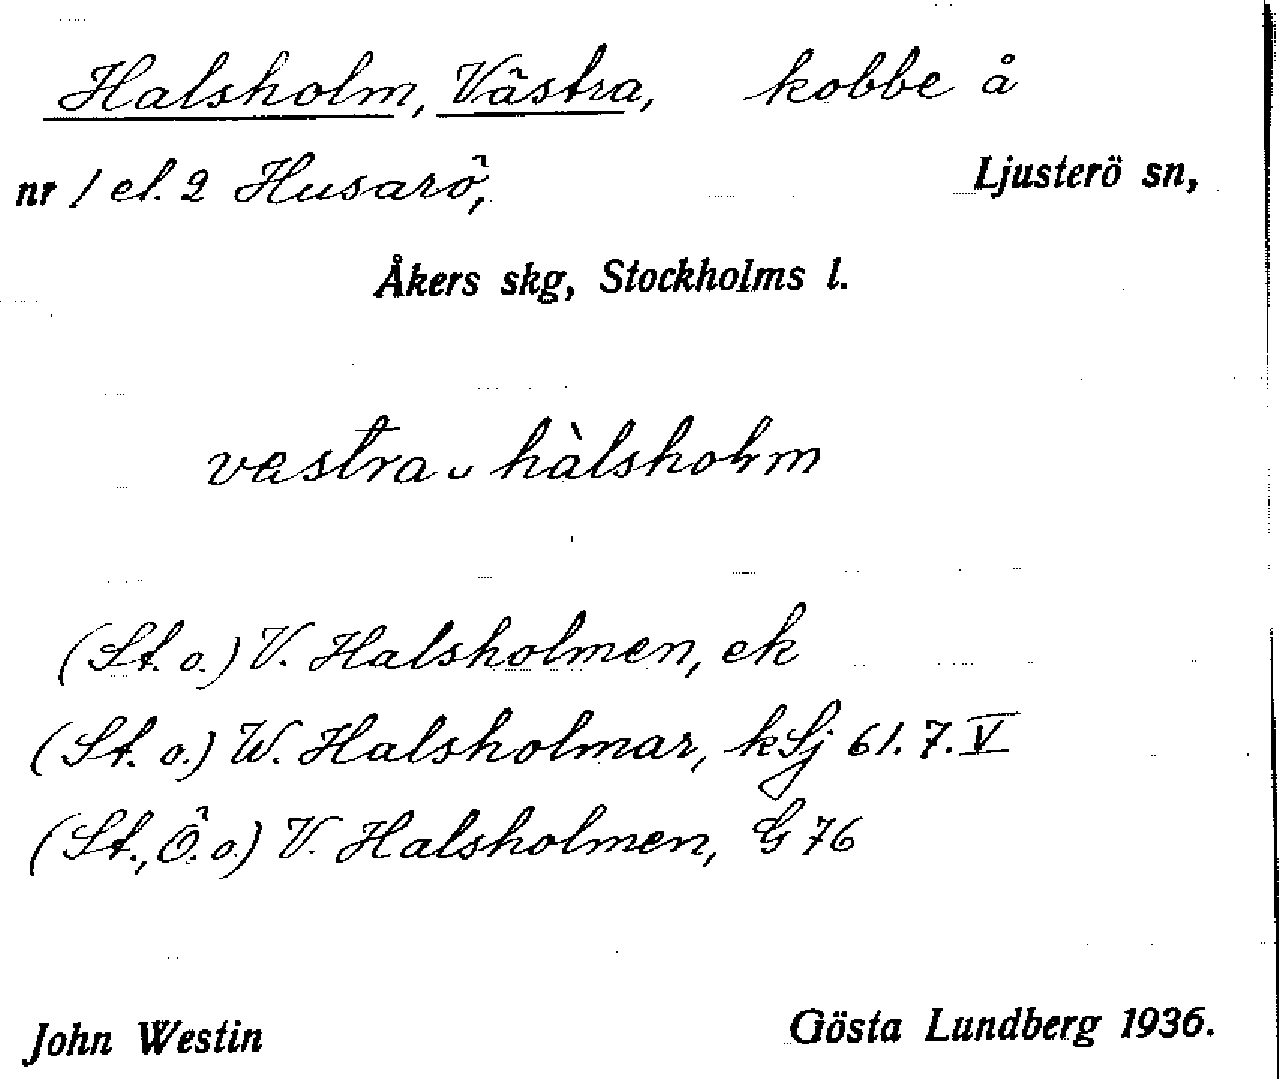 Halsholm, Västra, kobbe å
nr 1 el. 2 Husarö, Ljusterö sn,
Åkers skg, Stockholms l.
vastra ᴗ hàlsholm
(St. o.) V. Halsholmen, ek
(St. o.) W. Halsholmar, kSj 61. 7. V
(St., Ö. o.) V. Halsholmen, G 76
John Westin Gösta Lundberg 1936.